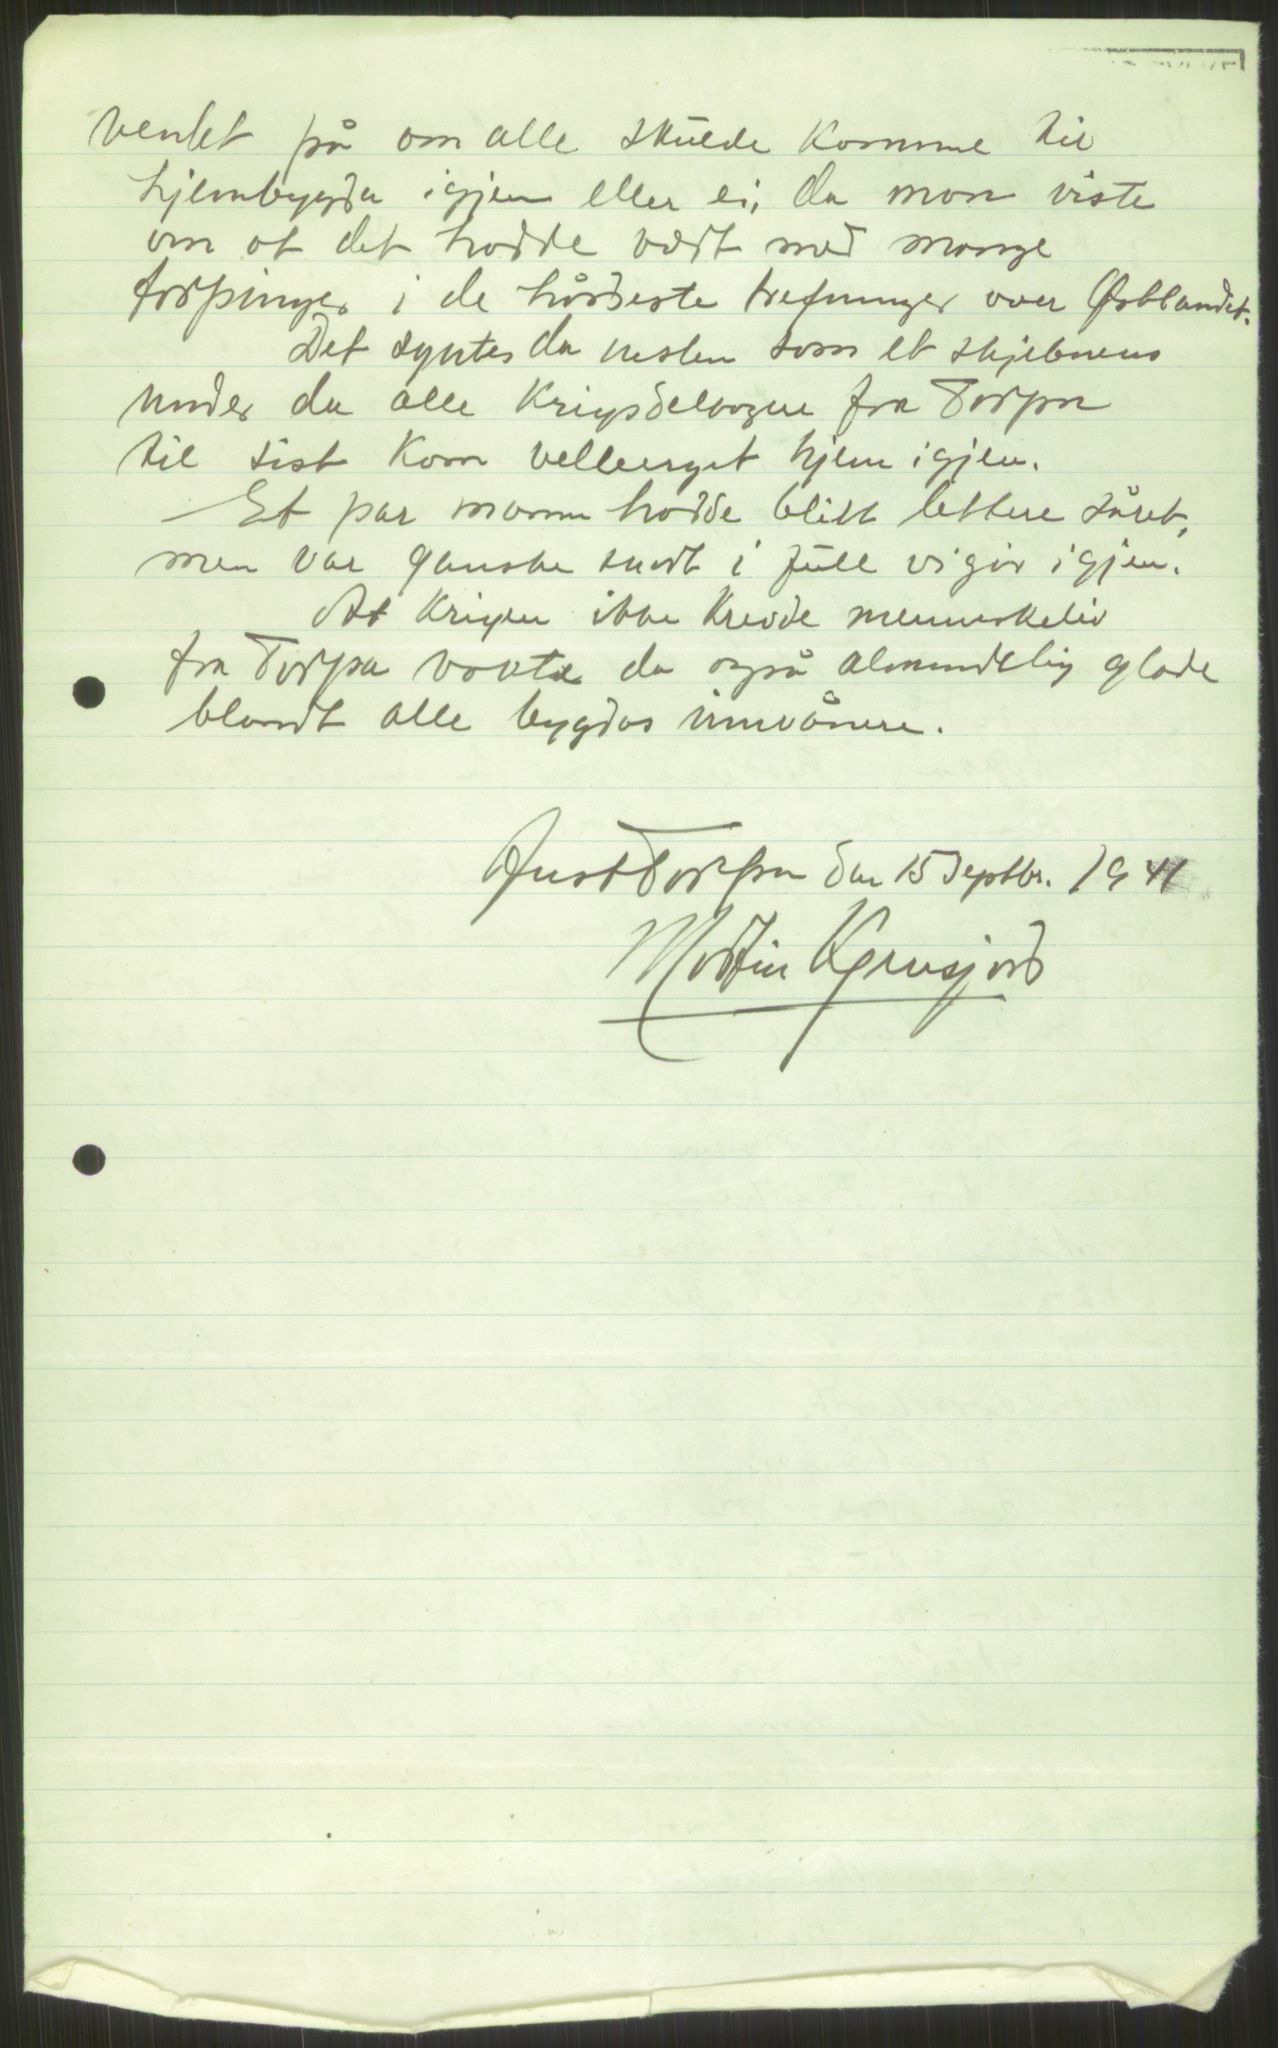 ventet på om alle skulde komme til
hjembygda igjen eller ei, da man viste
om at det hadde vært med mange
torpinger i de hårdeste trefninger over Østlandet.
Det syntes da nesten som et skjebnens
under da alle krigsdeltagere fra Torpa
til sist kom velberget hjem igjen.
Et par mann hadde blitt lettere såret,
men var ganske snart i full vigør igjen.
At krigen ikke krevde menneskeliv
fra Torpa vakte da også almindelig glede
blandt alle bygdas innvånere.
Aust Torpa den 15 Septbr. 1941
Martin